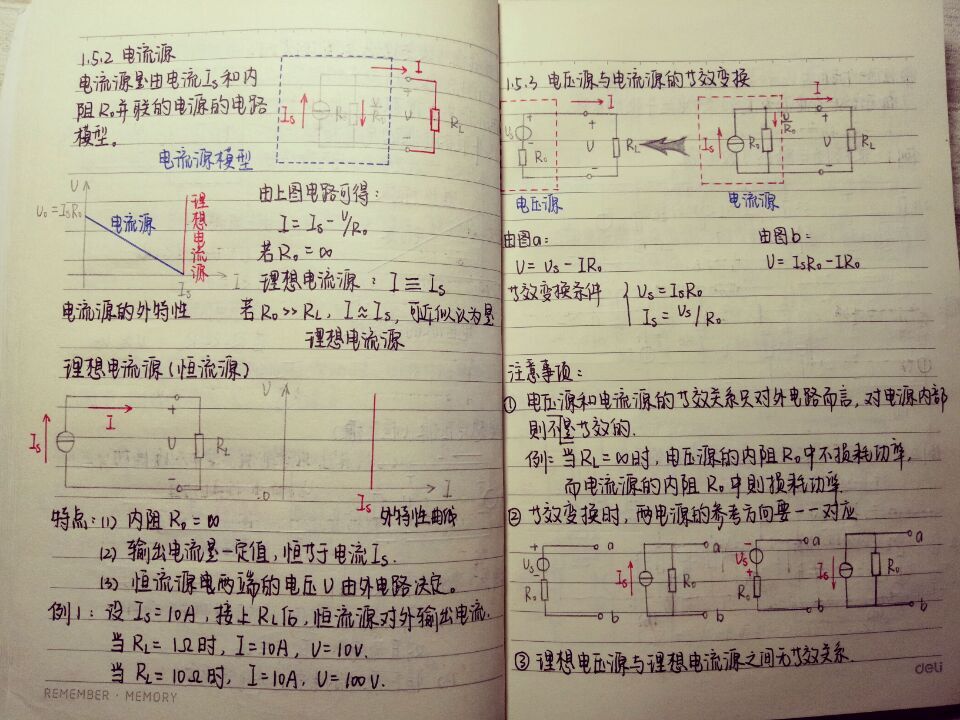 1.5.2 电流源
电流源是由电流Is和内
阻R₀并联的电源的电路
模型。
I
Is
R₀
U/R₀
+
U
-
RL
电流源模型
U
U₀=IsR₀
电流源
理想电流源
Is
I
由上图电路可得:
I = Is - U/R₀
若R₀ = ∞
理想电流源: I ≡ Is
电流源的外特性
若R₀>>RL, I≈Is, 可近似认为是
理想电流源
理想电流源(恒流源)
Is
I
+
U
-
RL
U
0
Is
I
特点:(1) 内阻R₀ = ∞
外特性曲线
(2) 输出电流是一定值,恒等于电流Is.
(3) 恒流源电两端的电压U由外电路决定。
例1: 设Is=10A, 接上RL后, 恒流源对外输出电流.
当RL= 1Ω时, I=10A, U=10V.
当RL=10Ω时, I=10A, U=100V.
REMEMBER · MEMORY
1.5.3 电压源与电流源的等效变换
I
Us
+
-
R₀
+
U
-
RL
I
Is
R₀
U/R₀
+
U
-
RL
电压源
电流源
由图a:
由图b:
U= Us - IR₀
U= IsR₀-IR₀
等效变换条件
Us = IsR₀
Is = Us/R₀
注意事项:
① 电压源和电流源的等效关系只对外电路而言,对电源内部
则不是等效的.
例: 当RL=∞时, 电压源的内阻R₀中不损耗功率,
而电流源的内阻R₀中则损耗功率.
② 等效变换时, 两电源的参考方向要一一对应
+
Us
-
R₀
a
b
Is
R₀
a
b
-
Us
+
R₀
a
b
Is
R₀
a
b
③ 理想电压源与理想电流源之间无等效关系.
deli